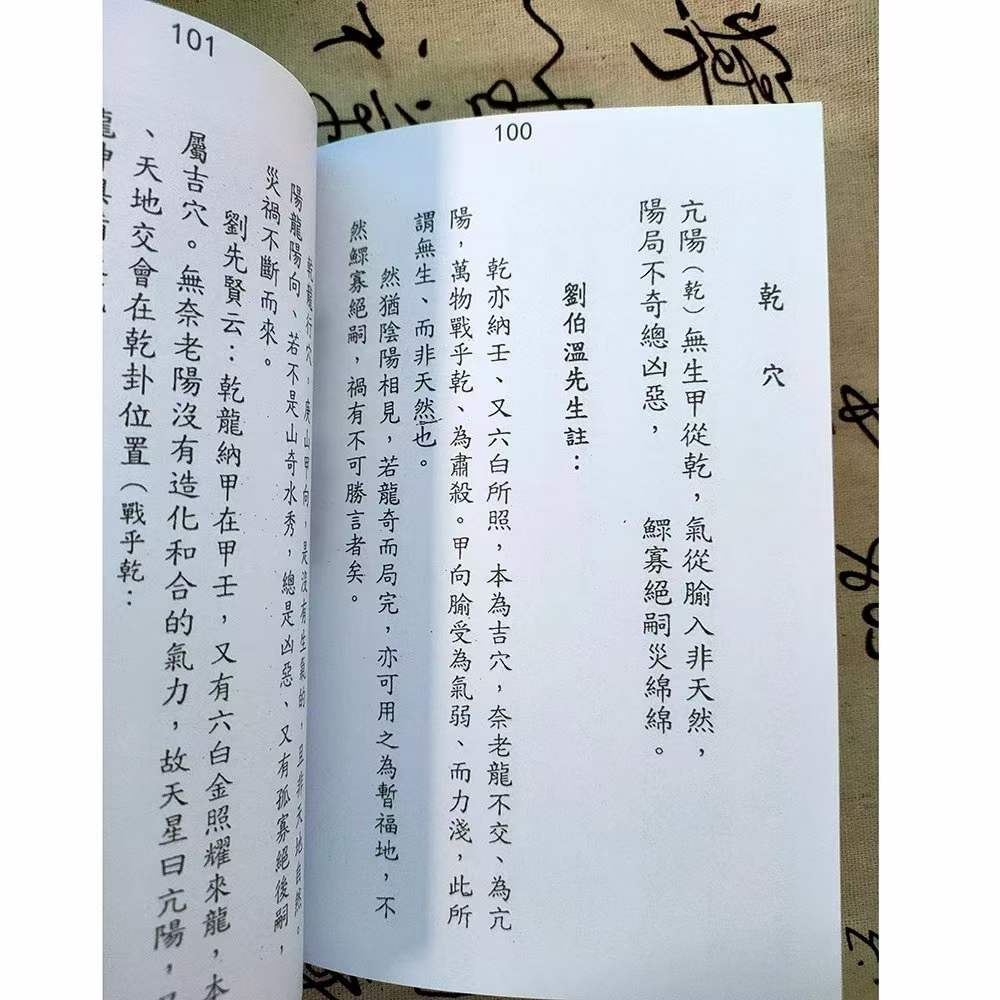 100
乾穴
亢陽（乾）無生甲從乾，氣從腧入非天然，
陽局不奇總凶惡，鰥寡絕嗣災綿綿。
劉伯溫先生註：
乾亦納壬、又六白所照，本為吉穴，奈老龍不交、為亢
陽，萬物戰乎乾、為肅殺。甲向腧受為氣弱、而力淺，此所
謂無生、而非天然也。
然猶陰陽相見，若龍奇而局完，亦可用之為暫福地，不
然鰥寡絕嗣，禍有不可勝言者矣。
101
乾龍行穴，庚山甲向，是沒有生氣的，且非天地自然。
陽龍陽向、若不是山奇水秀，總是凶惡、又有孤寡絕後嗣，
災禍不斷而來。
劉先賢云：乾龍納甲在甲壬，又有六白金照耀來龍，本
屬吉穴。無奈老陽沒有造化和合的氣力，故天星曰亢陽，
、天地交會在乾卦位置（戰乎乾：